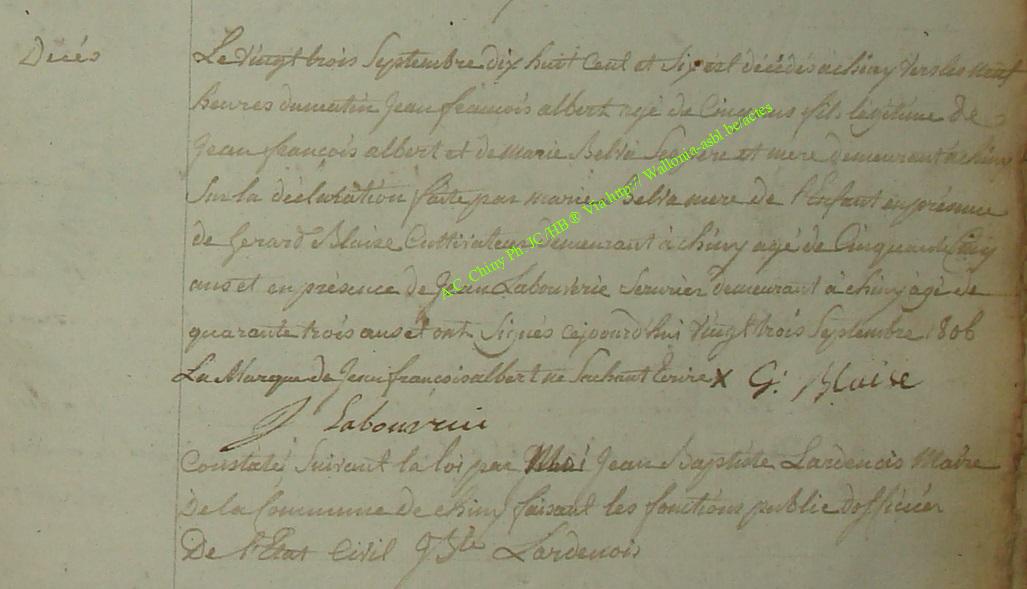 Décés
Le vingt trois Septembre dix huit Cent et Six est décédés a chiny vers les neuf
heures du matin Jean françois albert agé de Cinq ans fils légitime de
Jean françois albert et de marie Belva Ses père et mere demeurant a chiny
Sur la déclaration faite par marie Belva mere de l'Enfant en présence
de Gerard Blaise Cultivateur demeurant à chiny agé de Cinquante Cinq
ans et en présence de Jean Labouverie Serurier demeurant à chiny agé de
quarante trois ans et ont Signés cejourd'hui vingt trois Septembre 1806
La Marque de Jean françois albert ne Sachant Ecrire X G: Blaise
J Labouverie
Constaté Suivant la loi par Moi Jean Baptiste Lardenois Maire
De la Commune de chiny faisant les fonctions public d'officier
De l'Etat Civil J Bte Lardenois
A.C. Chiny Ph. JC/HB® Via http// Wallonia-asbl.be/actes